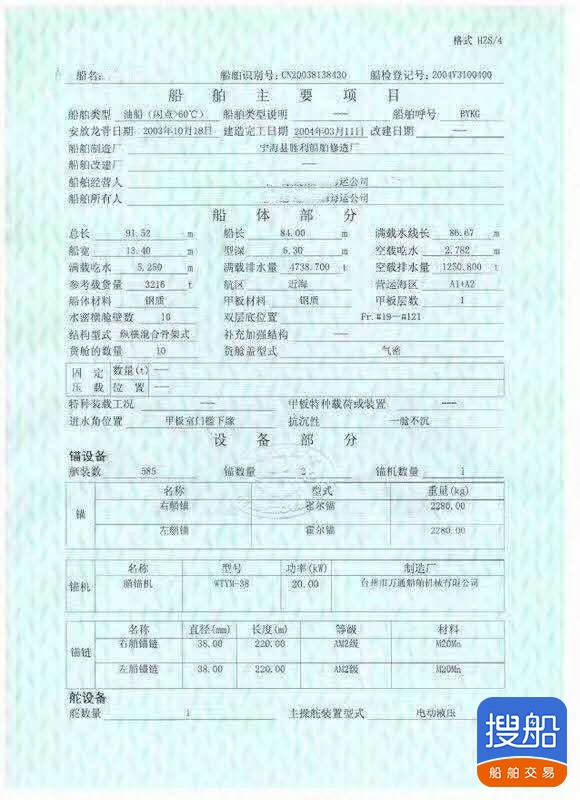 格式 HZS/4
船名: 船舶识别号: CN20038138430 船检登记号: 2004V3100400
船舶主要项目
船舶类型 油船(闪点>60℃) 船舶类型说明 —— 船舶呼号 BYKG
安放龙骨日期 2003年10月18日 建造完工日期 2004年03月11日 改建日期 ——
船舶制造厂 宁海县胜利船舶修造厂
船舶改建厂 ——
船舶经营人 海运公司
船舶所有人 海运公司
船体部分
总长 91.52 m 船长 84.00 m 满载水线长 86.67 m
船宽 13.40 m 型深 6.30 m 空载吃水 2.782 m
满载吃水 5.250 m 满载排水量 4738.700 t 空载排水量 1250.800 t
参考载货量 3216 t 航区 近海 营运海区 A1+A2
船体材料 钢质 甲板材料 钢质 甲板层数 1
水密横舱壁数 10 双层底位置 Fr.#19-#121
结构型式 纵横混合骨架式 补充加强结构 ——
货舱的数量 10 货舱盖型式 气密
固定 数量(t) ——
压载 位置 ——
特种装载工况 —— 甲板特种载荷或装置 ——
进水角位置 甲板室门槛下缘 抗沉性 一舱不沉
设备部分
锚设备
舾装数 585 锚数量 2 锚机数量 1
名称 型式 重量(kg)
锚
右艏锚 霍尔锚 2280.00
左艏锚 霍尔锚 2280.00
名称 型号 功率(kW) 制造厂
锚机 艏锚机 WTYM-38 20.00 台州市万通船舶机械有限公司
名称 直径(mm) 长度(m) 等级 材料
锚链
右艏锚链 38.00 220.00 AM2级 M20Mn
左艏锚链 38.00 220.00 AM2级 M20Mn
舵设备
舵数量 1 主操舵装置型式 电动液压
搜船
船舶交易